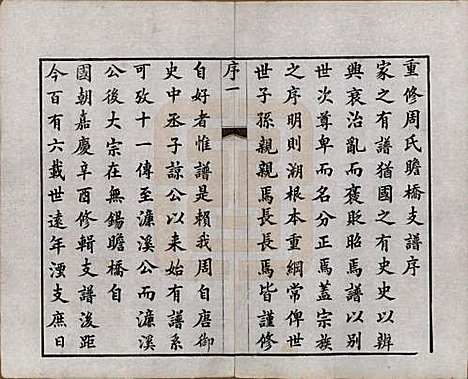 重修周氏瞻橋支譜序
家之有譜猶國之有史史以辨
興衰治亂而褒貶昭焉譜以别
世次尊卑而名分正焉蓋宗族
之序明則溯根本重綱常俾世
世子孫親親焉長長焉皆謹修
序一
自好者惟譜是賴我周自唐御
史中丞子諒公以来始有譜系
可攷十一傳至濂溪公而濂溪
公後大宗在無錫瞻橋自
國朝嘉慶辛酉修輯支譜後距
今百有六載世遠年湮支庶日